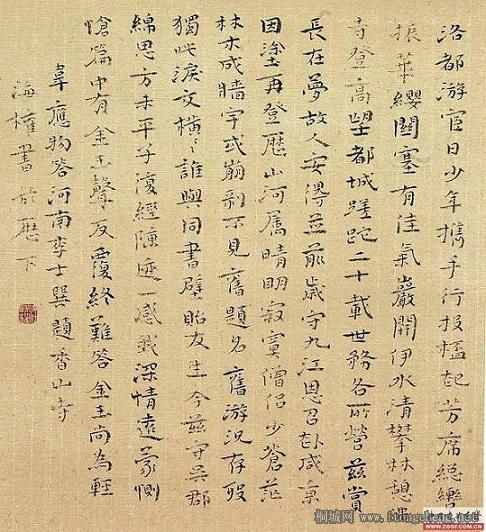 洛都游宦日少年攜手行投杯起芳席總轡
振華纓關塞有佳氣巖開伊水清攀林憩佛
寺登高望都城蹉跎二十載世務各所營茲賞
長在夢故人安得並前歲守九江恩召赴咸京
因塗再登歷山河屬晴明寂寞僧侶少蒼茫
林木成牆宇或崩剝不見舊題名舊游況存歿
獨此淚交橫〻誰與同書壁貽友生今茲守吳郡
綿思方未平子復經陳迹一感我深情遠蒙惻
愴篇中有金玉聲反覆終難答金玉尚為輕
韋應物答河南李士巽題香山寺
海權書於歷下
桐城网